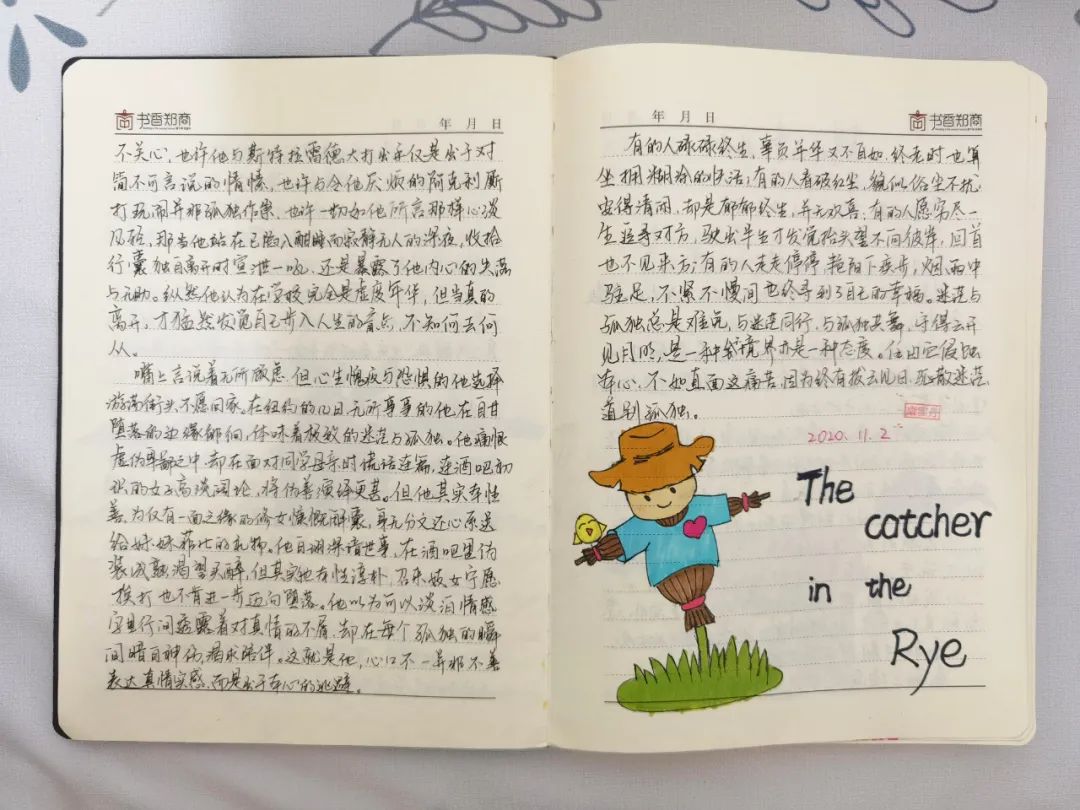 书香郑商
年 月 日
不关心，也许他与斯特拉雷德大打出手仅是出于对
简不可言说的情愫，也许与令他厌烦的阿克利厮
打玩闹并那孤独作祟，也许一切如他所言那样心淡
风轻，那当他站在已陷入酣睡而寂静无人的深夜，收拾
行囊独自离开时宣泄一吼，还是暴露了他内心的失落
与无助。纵然他认为在学校完全是虚度年华，但当真的
离开，才猛然发觉自己步入人生的盲点，不知何去何
从。
嘴上言说着无所顾虑，但心生愧疚与恐惧的他选择
游荡街头不愿回家。在纽约的几日，无所事事的他，在自甘
堕落的边缘徘徊，体味着极致的迷茫与孤独。他痛恨
虚伪，却在面对同学母亲时谎话连篇，连酒吧初
识的女子高谈阔论，将伪善演绎更甚。但他其实本性
善，为仅有一面之缘的修女慷慨解囊，身无分文还心系送
给妹妹菲比的礼物。他自诩深谙世事，在酒吧里伪
装成熟渴望买醉，但其实他本性淳朴，召来妓女宁愿
挨打也不肯进一步迈向堕落。他以为可以淡泊情感
字里行间透露着对真情的不屑，却在每个孤独的瞬
间暗自神伤，渴求陪伴。这就是他，心口不一并非不善
表达真情实感，而是出于本心的逃避。
年 月 日
书香郑商
有的人碌碌终生，辜负年华又不自知，终老时也算
坐拥糊涂的快活；有的人看破红尘，貌似俗尘不扰
安得清闲，却是郁郁终生，并无欢喜；有的人愿穷尽一
生追寻对方，驶出半生才发觉抬头望不向彼岸，回首
也不见来方；有的人走走停停，艳阳下疾步，烟雨中
驻足，不紧不慢间也终寻到了自己的幸福。迷茫与
孤独总是难免，与迷茫同行，与孤独共舞，守得云开
见月明，是一种境界亦是一种态度。任由它侵蚀
本心，不如直面这痛苦，因为终有拨云见日，驱散迷茫，
道别孤独。
2020.11.2
The
catcher
in the
Rye